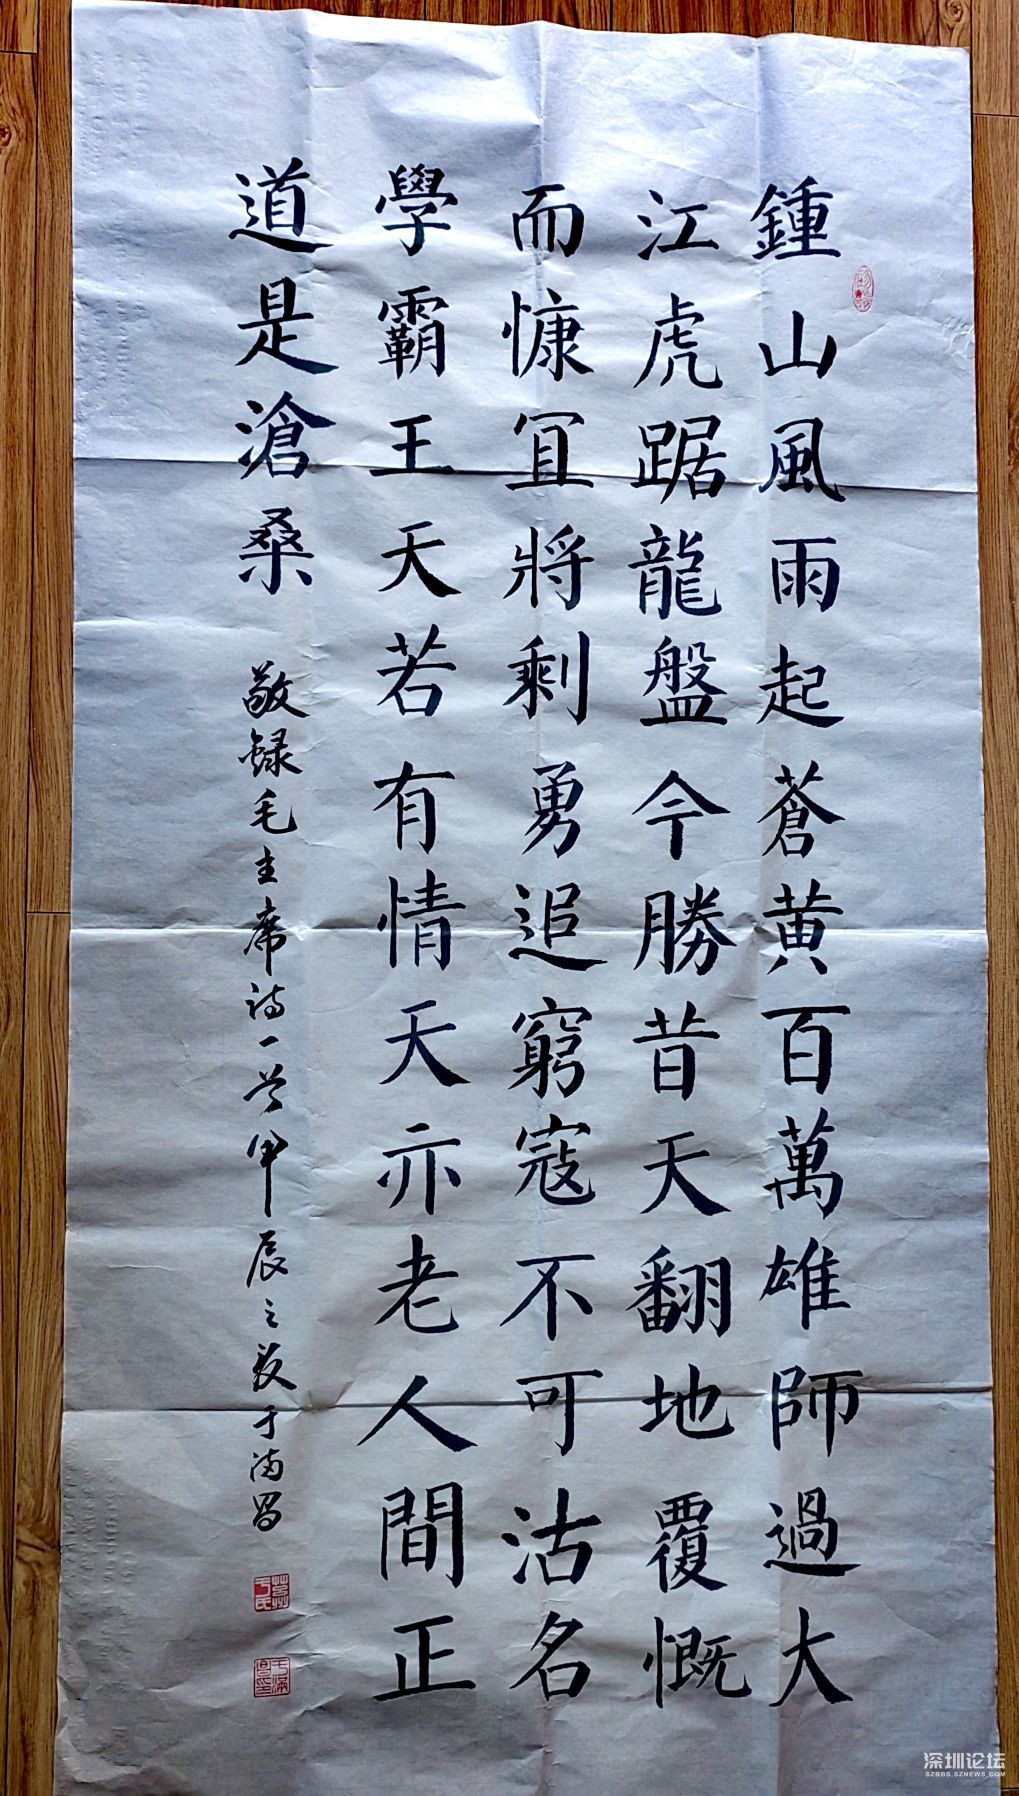 鍾山風雨起蒼黄百萬雄師過大
江虎踞龍盤今勝昔天翻地覆慨
而慷冝將剩勇追窮寇不可沽名
學霸王天若有情天亦老人間正
道是滄桑 敬録毛主席诗一首甲辰之夏于满昌
深圳论坛
SZBBS.SZNEWS.COM